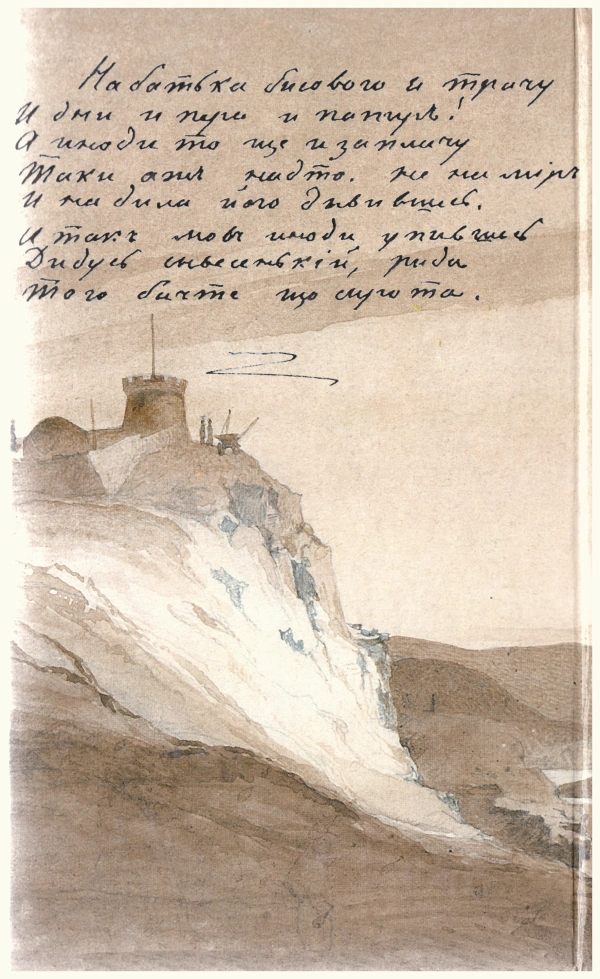 На батька бисового я трачу
И дни и пера и папиръ!
А иноди то ще и заплачу
Таки ажъ надто. не на міръ
И на дила його дывившись.
А такъ мовъ иноди упившись
Дидусь сывесенькій, рида
Того бачте що сирота.